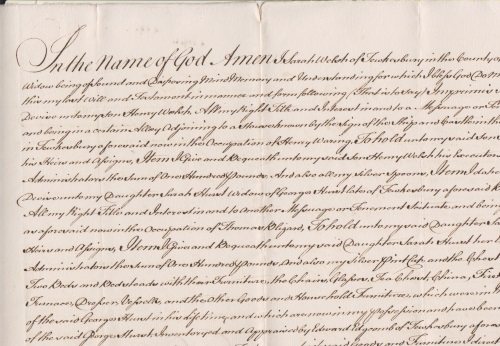 In the Name of God Amen I Sarah Welsh of Tewkesbury in the County of
Widow being of sound and Disposing Mind Memory and Understanding for which I bless God Do m
this my last Will and Testament in manner and form following (that is to say) Imprimis I
Devise unto my Son Henry Welsh, All my Right Title and Interest in and to a Messuage or Te
and being in a certain Alley Adjoining to a House known by the Sign of the Ship and
in Tewkesbury aforesaid now in the Occupation of Henry Waring, To hold unto my said Son
his Heirs and Assigns, Item I Give and Bequeath unto my said Son Henry Welsh his Executors
Administrators the Sum of One Hundred Pounds. And also all my Silver Spoons, Item I also
Devise unto my Daughter Sarah Hurst Widow of George Hurst late of Tewkesbury aforesaid
All my Right Title and Interest in and to Another Messuage or Tenement Situate and being
as aforesaid now in the Occupation of Thomas To hold unto my said Daughter Sa
Heirs and Assigns, Item I Give and Bequeath unto my said Daughter Sarah Hurst her
Administrators the Sum of One Hundred Pounds And also my Silver Pint Cup, and the Chest
Two Beds and Bedsteads with their Furniture, the Chairs, Glasses, Tea Chest, China,
Furnace, Dresser, Vessells, and the Other Goods and Household Furniture, which were in
of the said George Hurst in his Life time, and which are now in my possession and have been
of the said George Hurst, Inventoryed and Appraised by Edward of Tewkesbury afores
said Goods and Furniture I direct